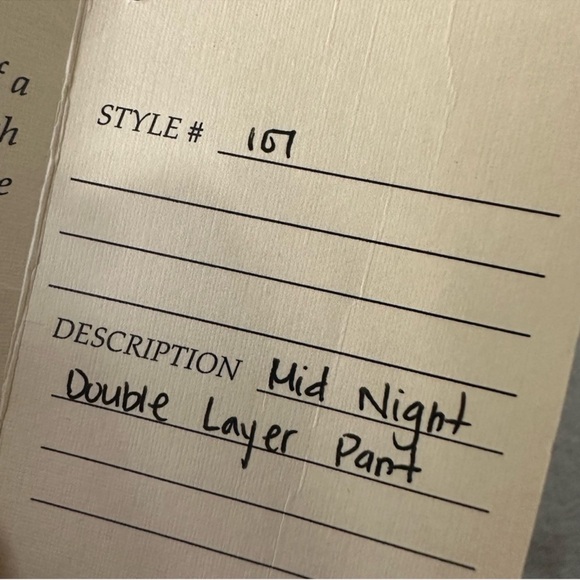 f a
h
e
STYLE # 107
DESCRIPTION Mid Night
Double Layer Pant